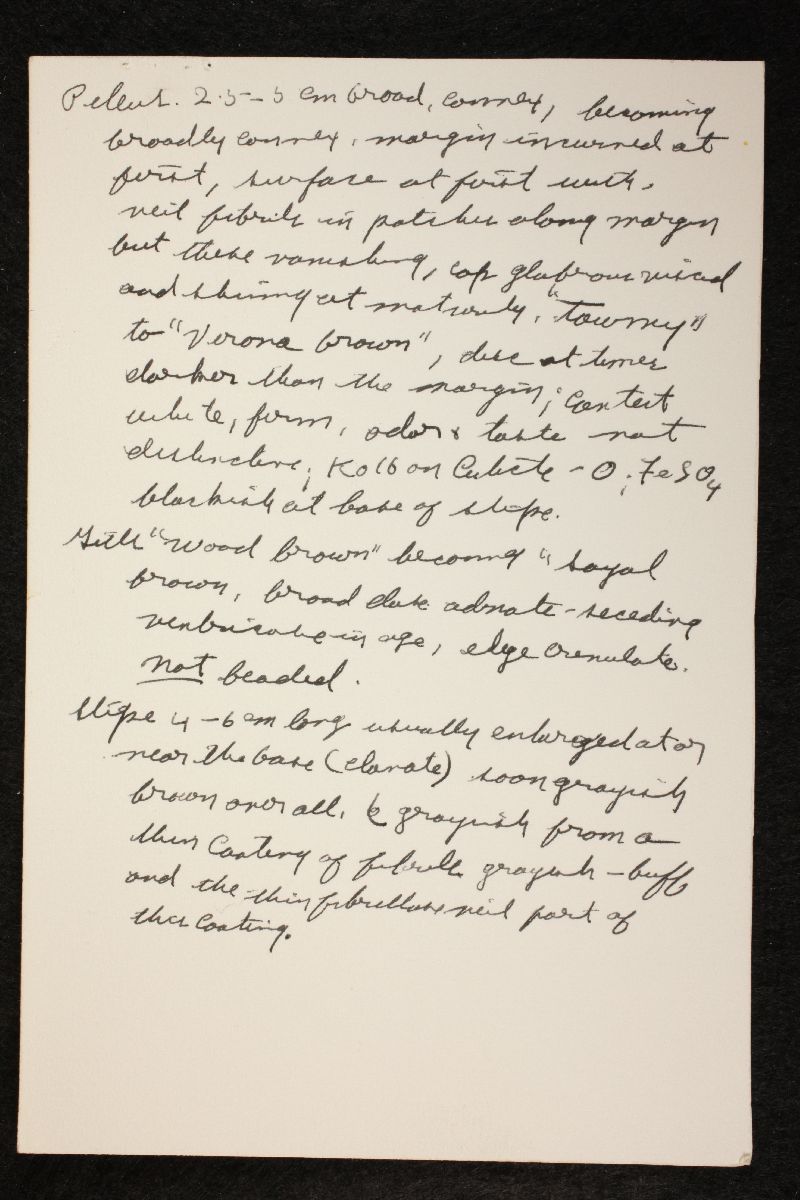 Pileus. 2.5-5 cm broad, convex, becoming
broadly convex, margin incurved at
first, surface at first with
veil fibrils in patches along margin
but these vanishing, cap glabrous viscid
and shining at maturity, "Tawny"
to "Verona brown", disc at times
darker than the margin; context
white, firm, odor & taste not
distinctive; KOH on Cuticle - O; FeSO4
blackish at base of stipe.
Gills "Wood brown" becoming "sayal
brown, broad close adnate-seceding
ventricose in age, edge crenulate.
not beaded.
Stipe 4-6 cm long usually enlarged at or
near the base (clavate) soon grayish
brown over all, grayish from a
thin Coating of fibrils grayish-buff
and the thin fibrillose veil part of
this coating.